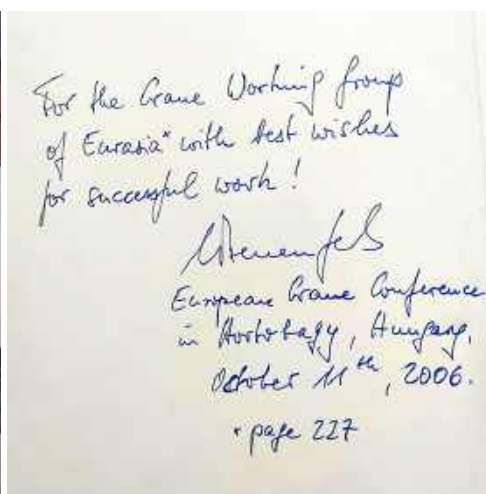 For the Crane Working Group
of Eurasia* with best wishes
for successful work!
European Crane Conference
in Hortobagy, Hungary,
October 11th, 2006.
* page 227